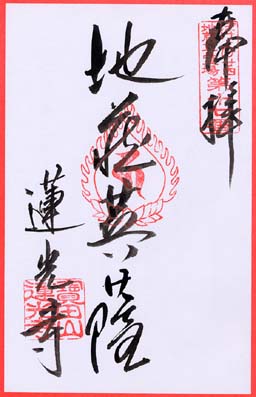 奉拝
地蔵菩薩
蓮光寺